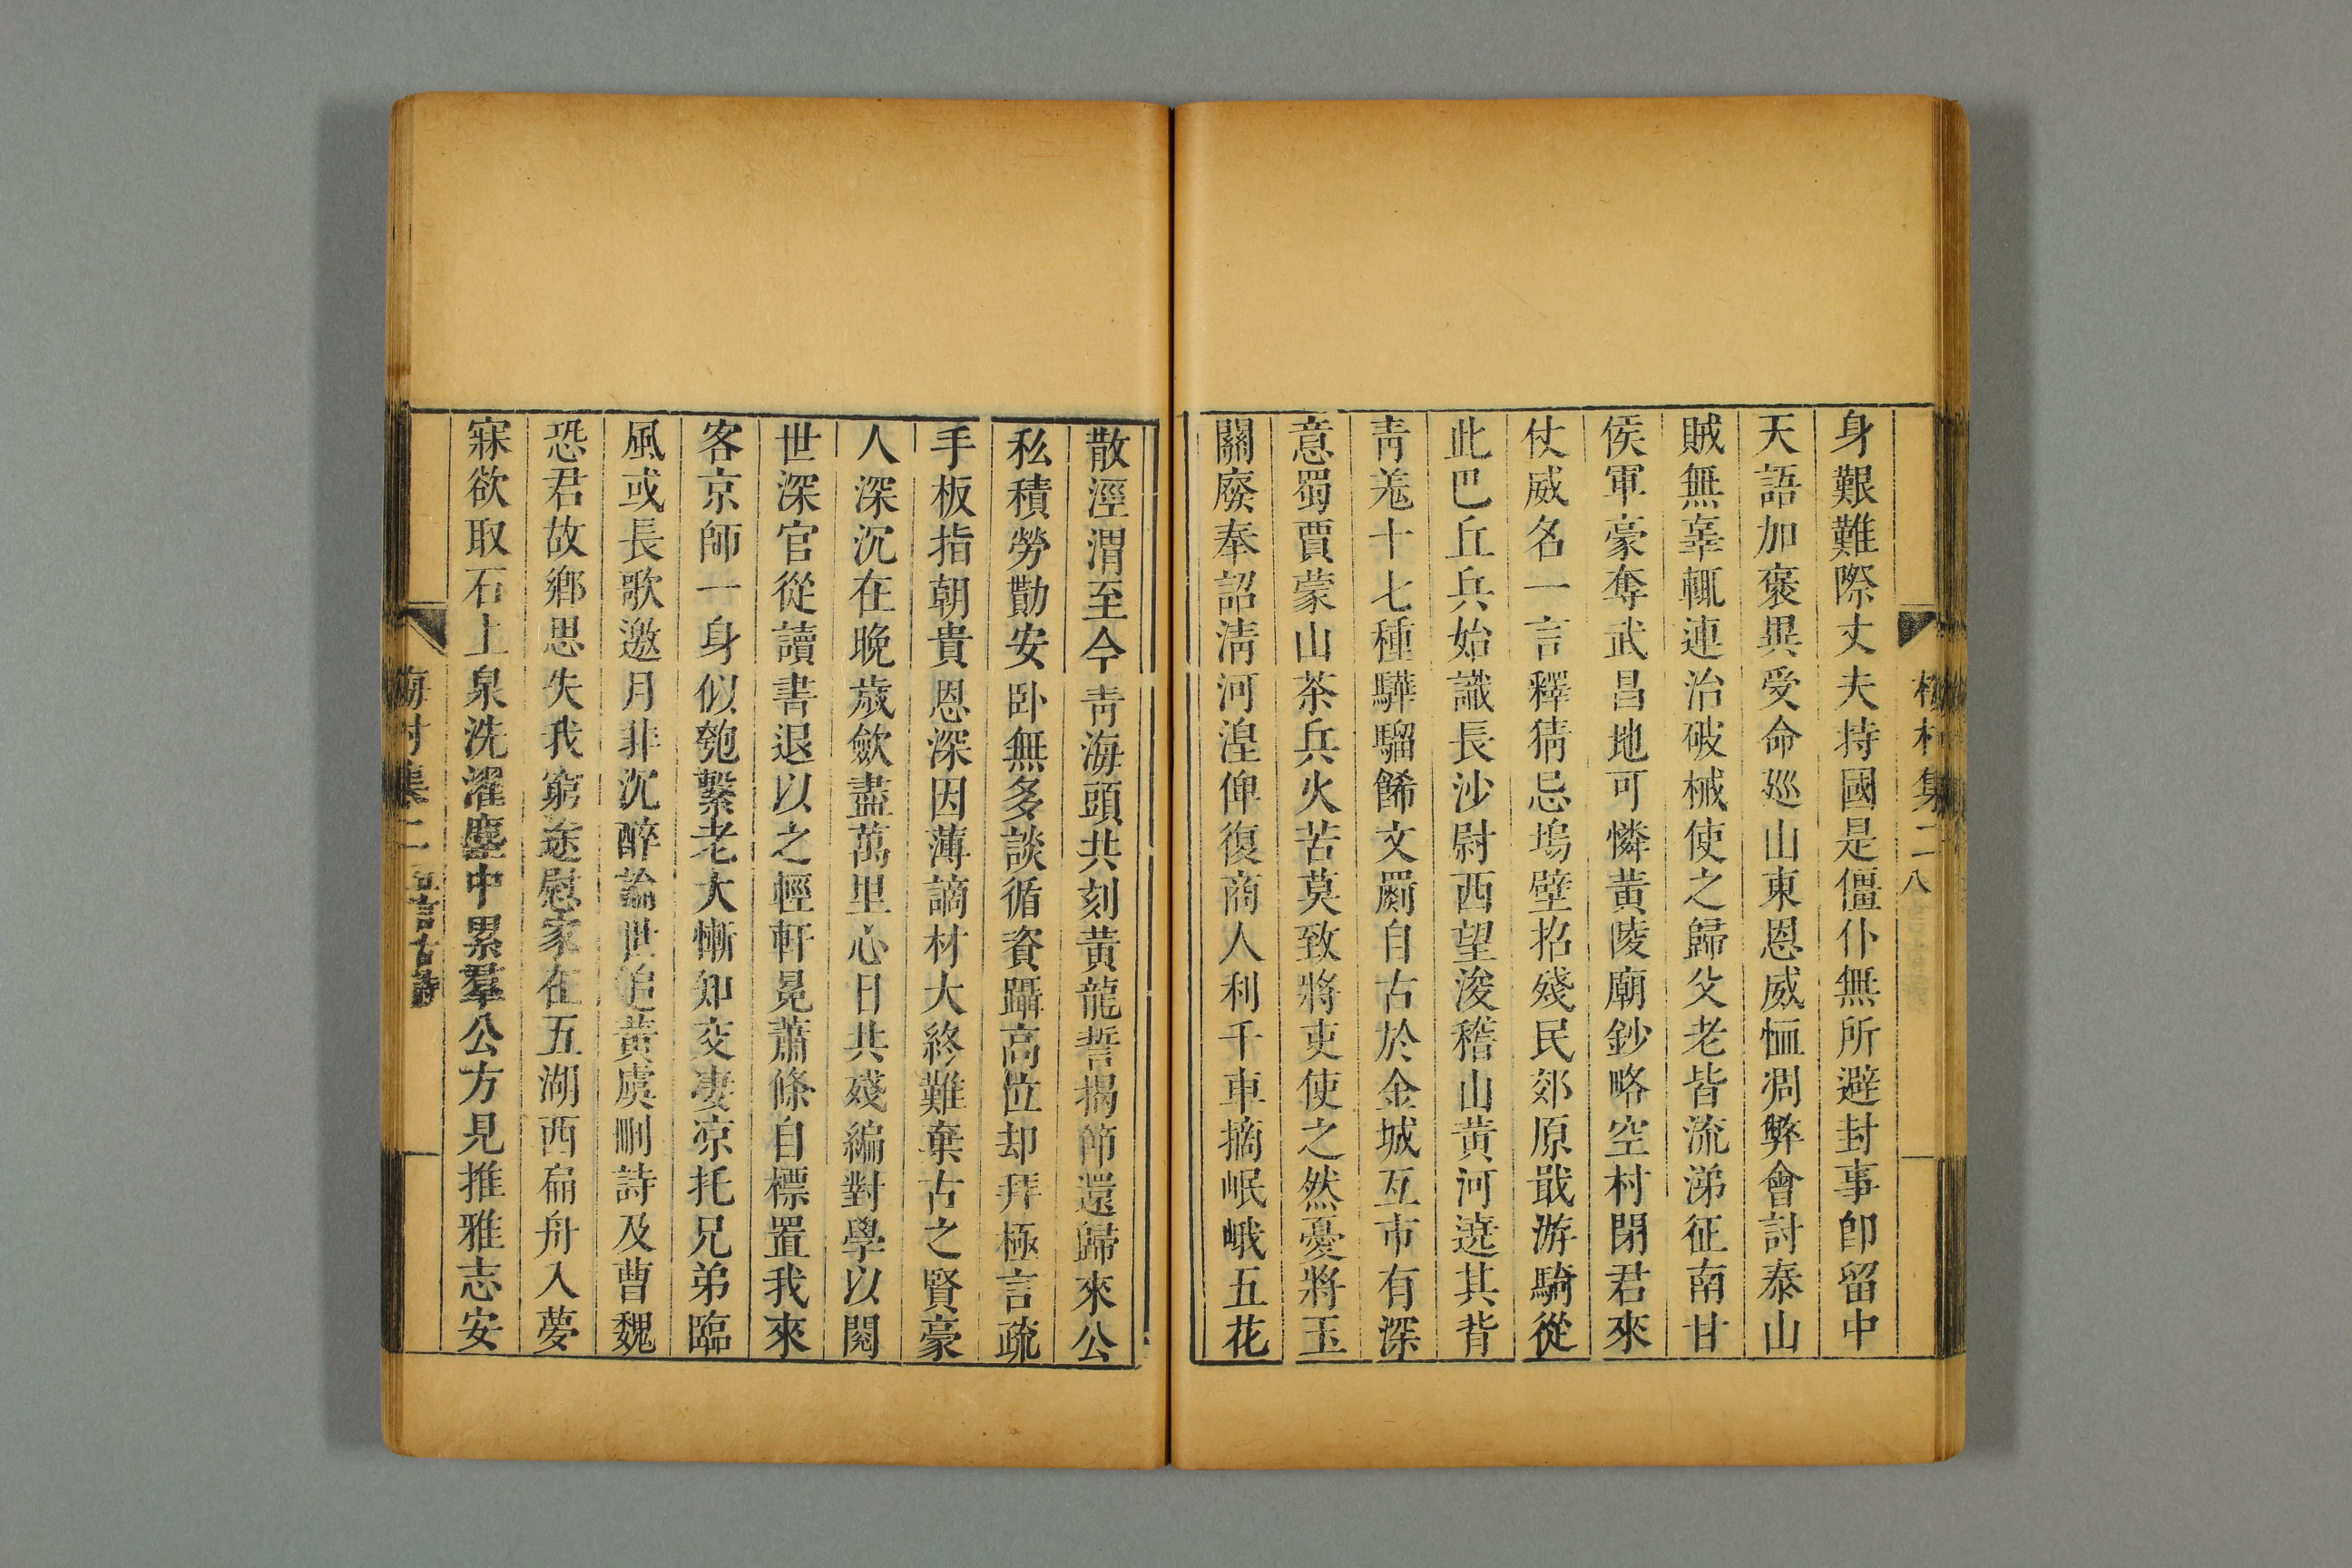 村集二 八
身艱難際丈夫持國是僵仆無所避封事卽留中
天語加褒異受命廵山東恩威恤凋弊會討泰山
賊無辜輒連治破械使之歸父老皆流涕征南甘
侯軍豪奪武昌地可憐黄陵廟鈔略空村閉君來
仗威名一言釋猜忌塢壁招殘民郊原戢游騎從
此巴丘兵始識長沙尉西望浚稽山黄河遶其背
靑羗十七種驊騮餙文罽自古於金城互市有深
意蜀賈蒙山茶兵火苦莫致將吏使之然憂將玉
關廢奉詔淸河湟俾復商人利千車摘岷峨五花
散涇渭至今靑海頭共刻黄龍誓揭節還歸來公
私積勞勩安卧無多談循資躡高位却拜極言疏
手板指朝貴恩深因薄謫材大終難棄古之賢豪
人深沉在晚歲歛盡萬里心日共殘編對學以閱
世深官從讀書退以之輕軒冕蕭條自標置我來
客京師一身似匏繫老大慚知交凄凉托兄弟臨
風或長歌邀月非沉醉論世追黄虞刪詩及曹魏
恐君故鄕思失我窮途慰家在五湖西扁舟入夢
寐欲取石上泉洗濯塵中累羣公方見推雅志安
梅村集二 五言古詩